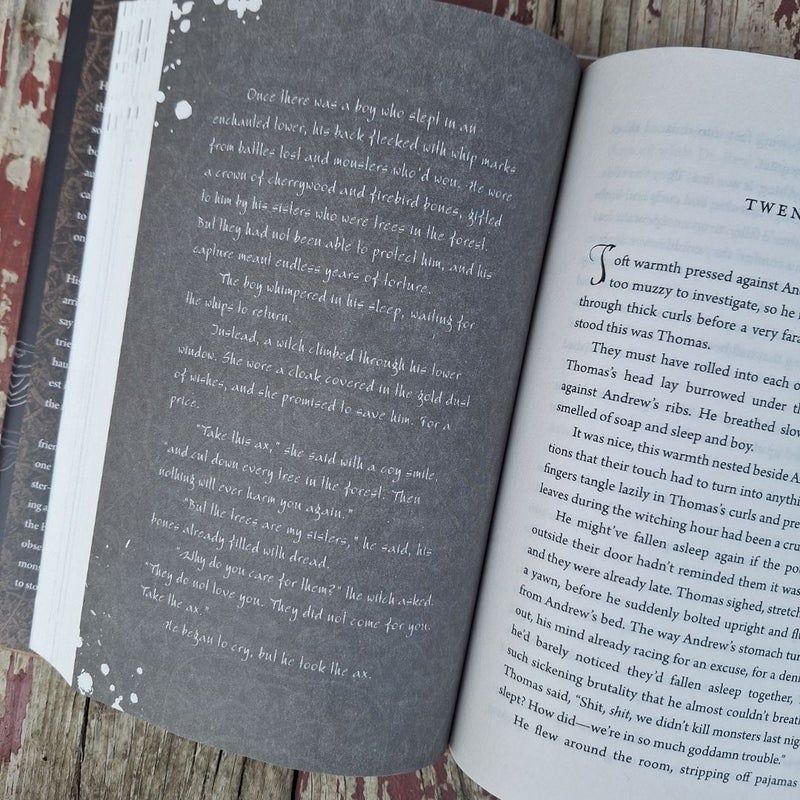 Once there was a boy who slept in an
enchanted tower, his back flecked with whip marks
from battles lost and monsters who'd won. He wore
a crown of cherrywood and firebird bones, gifted
to him by his sisters who were trees in the forest.
But they had not been able to protect him, and his
capture meant endless years of torture.
The boy whimpered in his sleep, waiting for
the whips to return.
Instead, a witch climbed through his tower
window. She wore a cloak covered in the gold dust
of wishes, and she promised to save him. For a
price.
"Take this ax," she said with a coy smile,
"and cut down every tree in the forest. Then
nothing will ever harm you again."
"But the trees are my sisters," he said, his
bones already filled with dread.
"Why do you care for them?" the witch asked.
"They do not love you. They did not come for you.
Take the ax."
He began to cry, but he took the ax.
TWEN
Soft warmth pressed against An
too muzzy to investigate, so he
through thick curls before a very fara
stood this was Thomas.
They must have rolled into each o
Thomas's head lay burrowed under th
against Andrew's ribs. He breathed slow
smelled of soap and sleep and boy.
It was nice, this warmth nested beside A
tions that their touch had to turn into anythi
fingers tangle lazily in Thomas's curls and pre
leaves during the witching hour had been a cru
He might've fallen asleep again if the po
outside their door hadn't reminded them it was
and they were already late. Thomas sighed, stretch
a yawn, before he suddenly bolted upright and fl
from Andrew's bed. The way Andrew's stomach tur
out, his mind already racing for an excuse, for a deni
he'd barely noticed they'd fallen asleep together,
such sickening brutality that he almost couldn't breath
Thomas said, "Shit, shit, we didn't kill monsters last nig
slept? How did—we're in so much goddamn trouble."
He flew around the room, stripping off pajamas